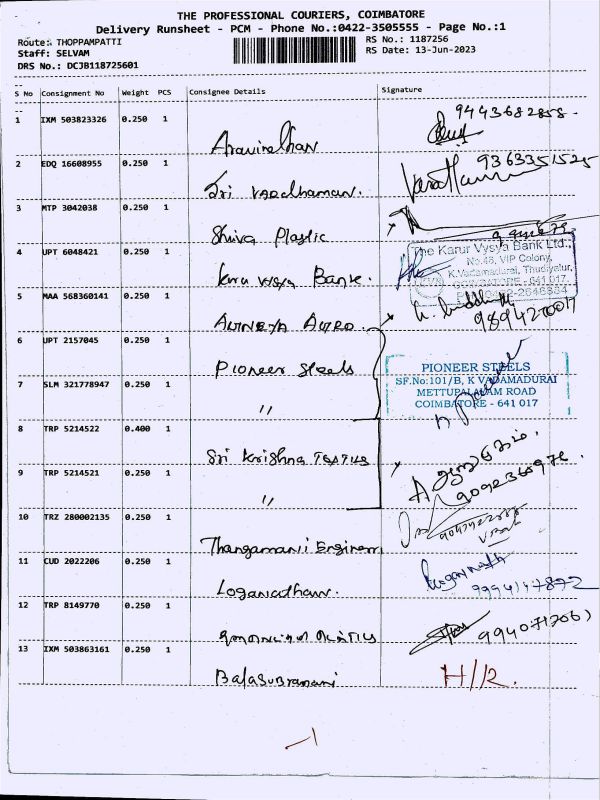 THE PROFESSIONAL COURIERS, COIMBATORE
Delivery Runsheet - PCM - Phone No.:0422-3505555 - Page No.:1
Route: THOPPAMPATTI
RS No.: 1187256
Staff: SELVAM
RS Date: 13-Jun-2023
DRS No.: DCJB118725601
S No Consignment No Weight PCS Consignee Details Signature
1 IXM 503823326 0.250 1
9443682858
2 EDQ 16608955 0.250 1
Sri Vardhaman.
9363351525
3 MTP 3042038 0.250 1
Shiva Plastic
4 UPT 6048421 0.250 1
Bank.
The Karur Vysya Bank Ltd.,
No.48, VIP Colony,
K.Vadamadurai, Thudiyalur,
COIMBATORE - 641 017
5 MAA 568360141 0.250 1
6 UPT 2157045 0.250 1
Pioneer Steels
PIONEER STEELS
SF.No:101/B, K VADAMADURAI
METTUPALAYAM ROAD
COIMBATORE - 641 017
7 SLM 321778947 0.250 1
"
8 TRP 5214522 0.400 1
Sri Krishna
9 TRP 5214521 0.250 1
"
10 TRZ 280002135 0.250 1
11 CUD 2022206 0.250 1
Loganathan.
12 TRP 8149770 0.250 1
13 IXM 503863161 0.250 1
Balasubramani